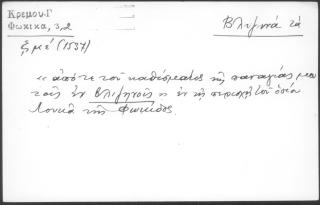 Κρέμου Γ
Φωκικα, 3,2
Βλιζηνά τὰ
ξμέ (1537)
« ἀπό τε τοῦ καθίσματος τῆς παναγίας μου
τοῦ ἐν Βλιζηνοῖς κ ἐν τῇ περιοχῇ τοῦ ὁσίου
Λουκᾶ τῆς Φωκίδος